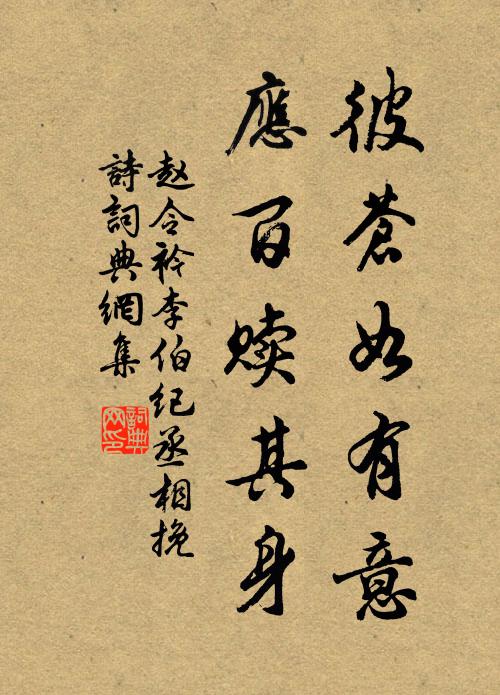 彼苍如有意
應百赎其身
赵令衿李伯纪丞相挽
詩詞典網集
詞典网印